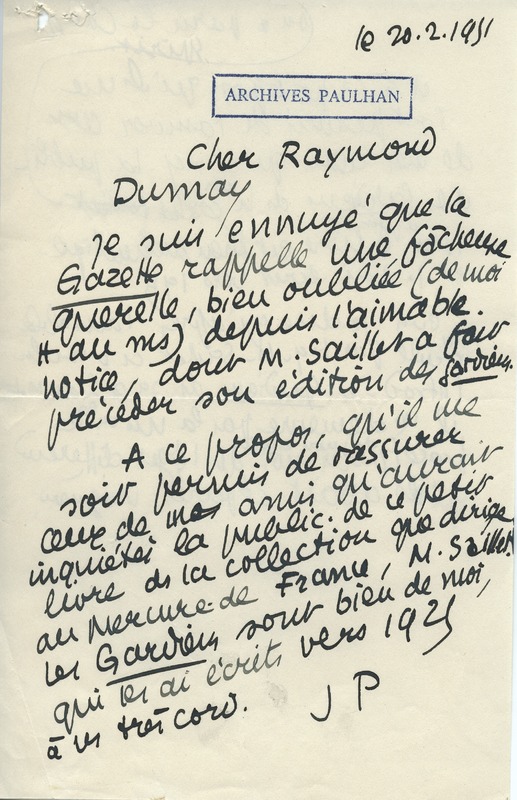 le 20.2.1951
ARCHIVES PAULHAN
Cher Raymond
Dumay
Je suis ennuyé que la
Gazette rappelle une fâcheuse
querelle, bien oubliée (de moi
au ms) depuis l'aimable.
notice, dont M. Saillet a fait
précéder son édition des Gardiens.
A ce propos, qu'il me
soit permis de rassurer
ceux de mes amis qu'aurait
inquiétés la public. de ce petit
livre ds la collection que dirige
au Mercure de France, M. Saillet
les Gardiens sont bien de moi,
qui les ai écrits vers 1925
à
J P